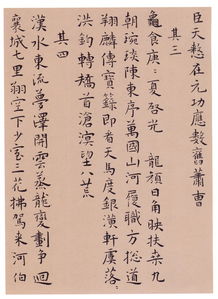 臣天憖在元功應數舊蕭曹
其三
龜食庚〻夏啟光龍顏日角映扶桒九
朝琬琰陳東序萬國山河履職方摠道
翔麟傳寶籙即看天馬度銀潢軒虞落〻
洪鈞轉矯首滄溟望八荒
其四
漢水東流夢澤開雲蒸龍變劃爭迴
襄城七里翔堂下少室三花拂駕来河伯